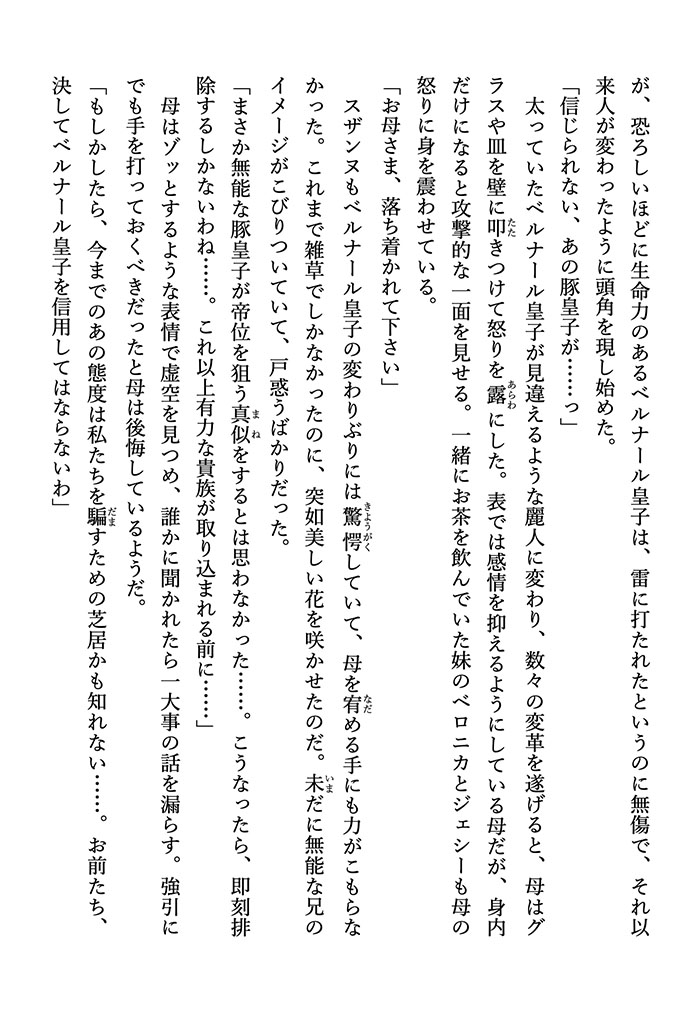 が、恐ろしいほどに生命力のあるベルナール皇子は、雷に打たれたというのに無傷で、それ以
来人が変わったように頭角を現し始めた。
「信じられない、あの豚皇子が……っ」
　太っていたベルナール皇子が見違えるような麗人に変わり、数々の変革を遂げると、母はグ
ラスや皿を壁に叩きつけて怒りを露にした。表では感情を抑えるようにしている母だが、身内
だけになると攻撃的な一面を見せる。一緒にお茶を飲んでいた妹のベロニカとジェシーも母の
怒りに身を震わせている。
「お母さま、落ち着かれて下さい」
　スザンヌもベルナール皇子の変わりぶりには驚愕していて、母を宥める手にも力がこもらな
かった。これまで雑草でしかなかったのに、突如美しい花を咲かせたのだ。未だに無能な兄の
イメージがこびりついていて、戸惑うばかりだった。
「まさか無能な豚皇子が帝位を狙う真似をするとは思わなかった……。こうなったら、即刻排
除するしかないわね……。これ以上有力な貴族が取り込まれる前に……」
　母はゾッとするような表情で虚空を見つめ、誰かに聞かれたら一大事の話を漏らす。強引に
でも手を打っておくべきだったと母は後悔しているようだ。
「もしかしたら、今までのあの態度は私たちを騙すための芝居かも知れない……。お前たち、
決してベルナール皇子を信用してはならないわ」